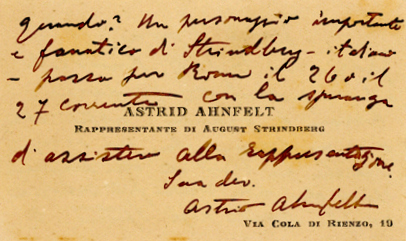 quando? Un personaggio importante
e fanatico di Strindberg – italiano
– passa per Roma il 26 o il
27 corrente con la speranza
ASTRID AHNFELT
RAPPRESENTANTE DI AUGUST STRINDBERG
di assistere alla rappresentazione.
Astrid Ahnfelt
VIA COLA DI RIENZO, 19